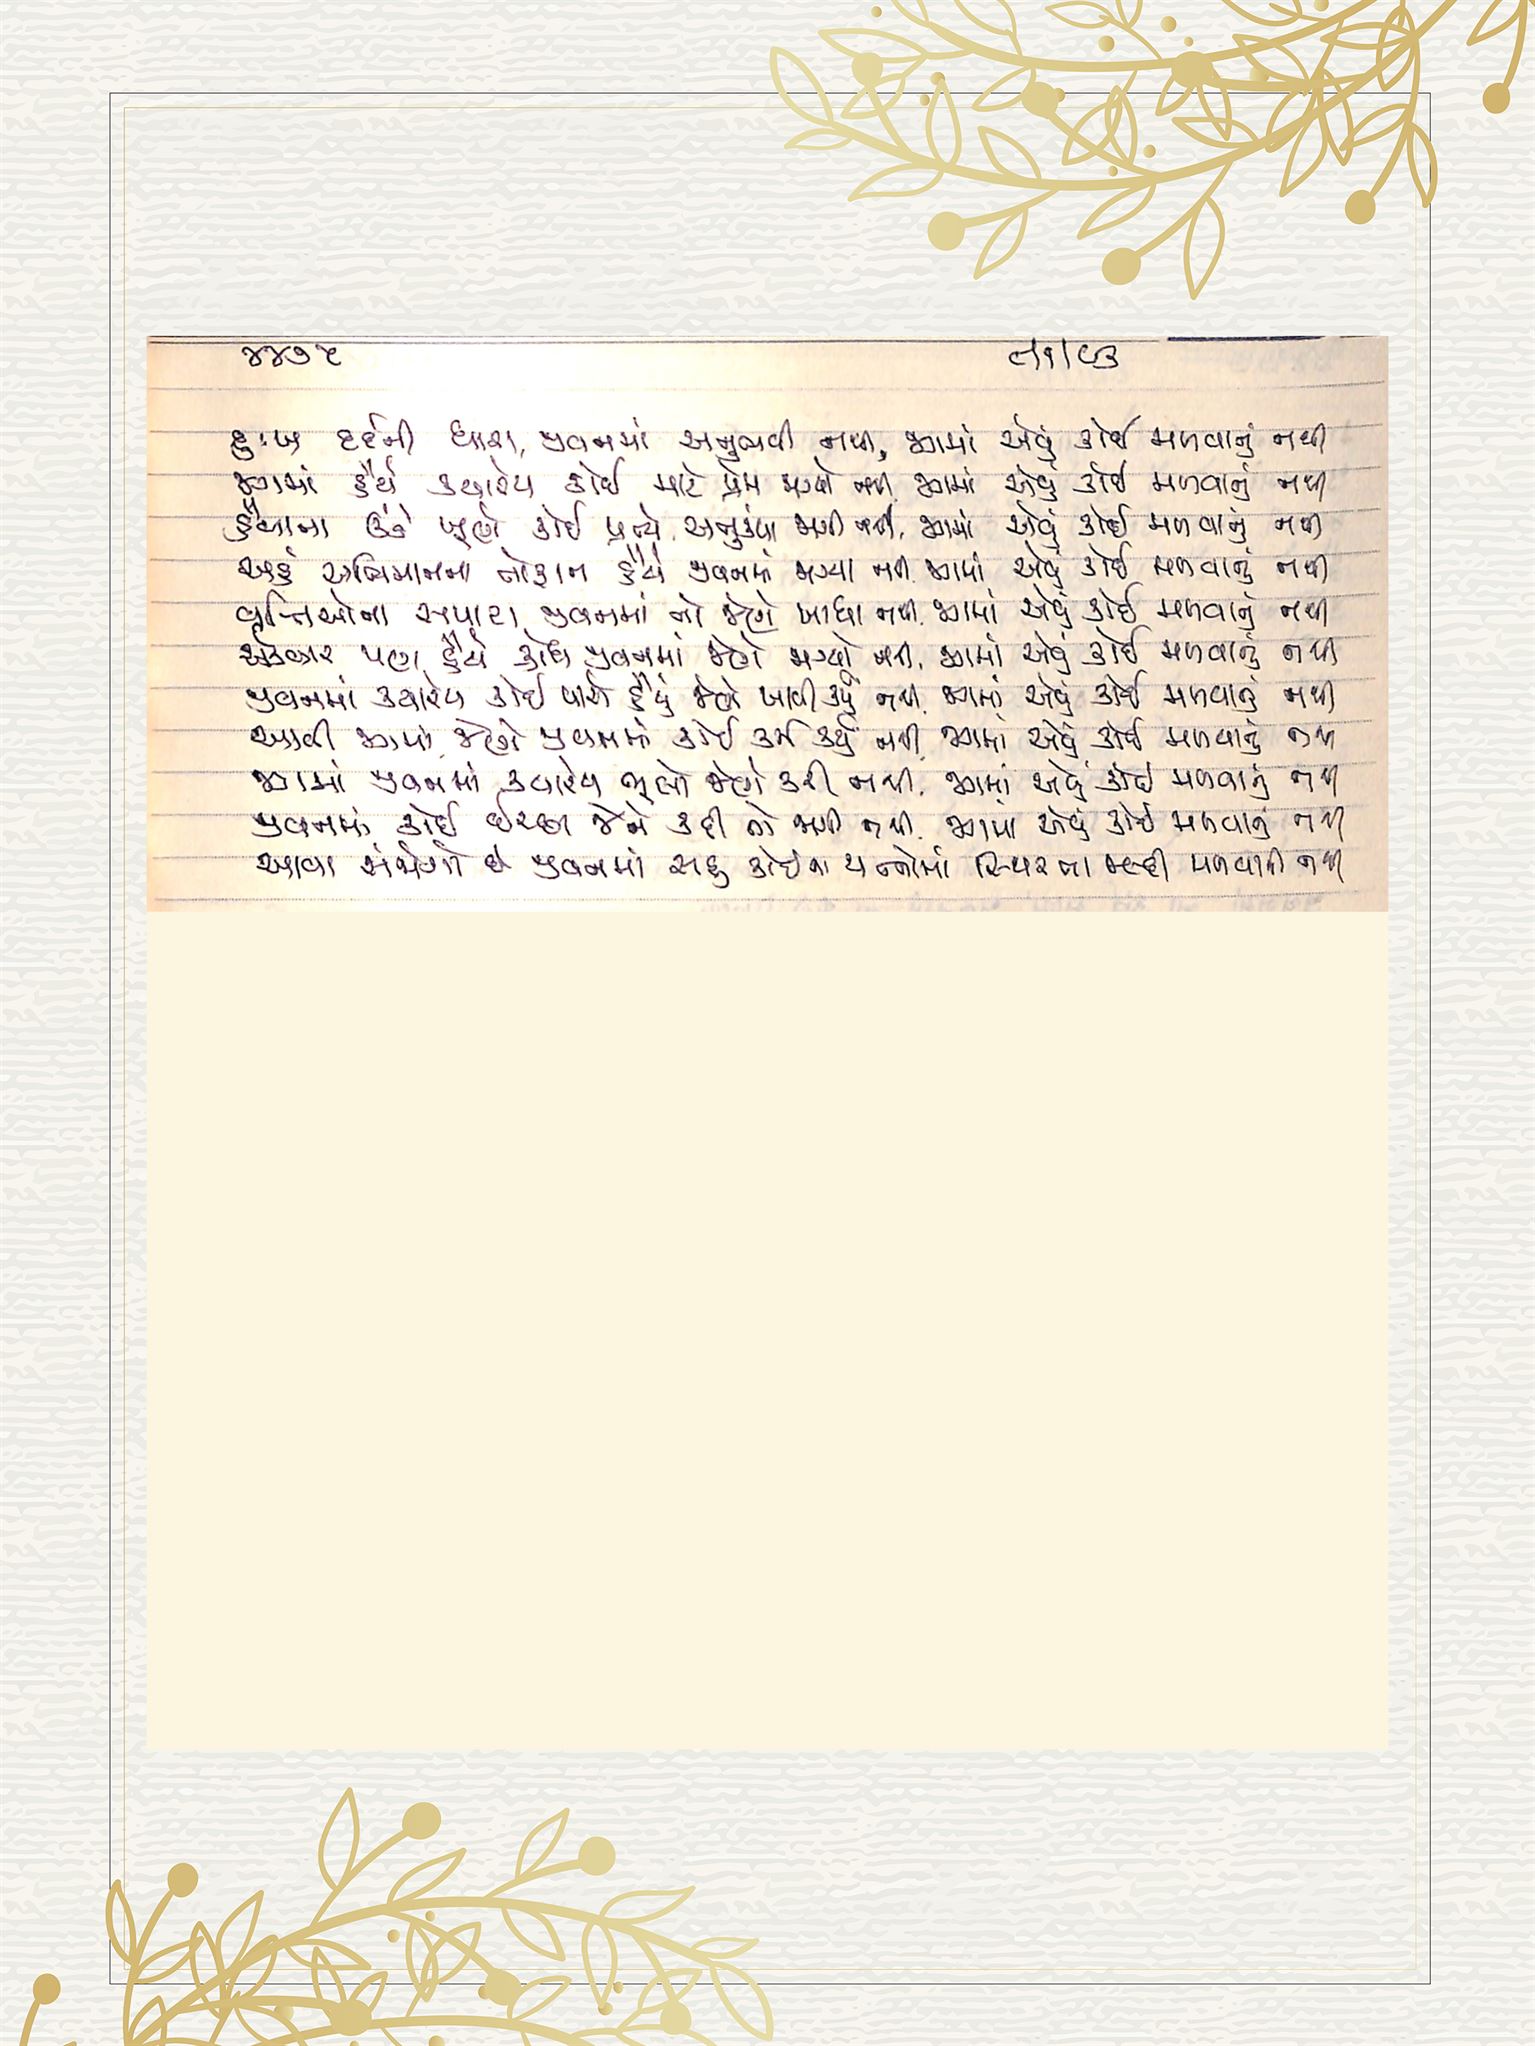 ૪૪૭૫
દુઃખ દર્દની ધારા, જીવનમાં અનુભવી નથી, જગમાં એવું કોઈ મળવાનું નથી
જગમાં હૈયે ક્યારેય કોઈ માટે પ્રેમ જાગ્યો નથી, જગમાં એવું કોઈ મળવાનું નથી
હૈયાના ઉંડે ખૂણે કોઈ પ્રત્યે અનુકંપા જાગી નથી, જગમાં એવું કોઈ મળવાનું નથી
અહં અભિમાનના તોફાન હૈયે જીવનમાં જાગ્યા નથી, જગમાં એવું કોઈ મળવાનું નથી
વૃત્તિઓના સપાટા, જીવનમાં તો જેણે ખાધા નથી, જગમાં એવું કોઈ મળવાનું નથી
એકવાર પણ હૈયે ક્રોધ જીવનમાં જેણે જાગ્યો નથી, જગમાં એવું કોઈ મળવાનું નથી
જીવનમાં ક્યારેય કોઈ પાસે હૈયું જેણે ખાલી કર્યું નથી, જગમાં એવું કોઈ મળવાનું નથી
આવી જગમાં, જેણે જીવનમાં કોઈ કર્મ કર્યું નથી, જગમાં એવું કોઈ મળવાનું નથી
જગમાં જીવનમાં ક્યારેય ભૂલો જેણે કરી નથી, જગમાં એવું કોઈ મળવાનું નથી
જીવનમાં કોઈ ઈચ્છા જેને કદી તો જાગી નથી, જગમાં એવું કોઈ મળવાનું નથી
આવા સંજોગો છે જીવનમાં સહુ કોઈના યત્નોમાં સ્થિરતા જલ્દી મળવાની નથી